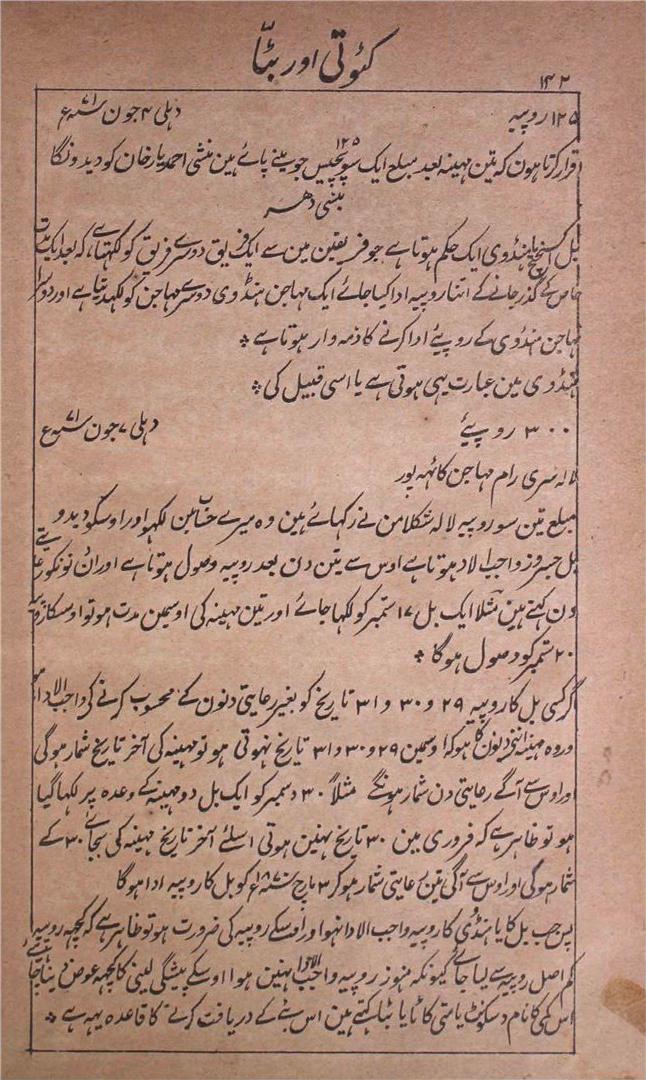 کٹوتی اور بٹّا
۱۴۲
۱۲۵ روپیہ دہلی ۴ جون ۷۱ء
اقرار کرتا ہون کہ تین مہینہ بعد مبلغ ایک سو پچیس ۱۲۵ جو مینے پائے ہین منشی احمد یار خان کو دیدونگا
بنسی دھر
بل یا ہنڈوی ایک حکم ہوتا ہے جو فریقین مین سے ایک فریق دوسرے فریق کو لکھتا ہے کہ بعد ایک مدت
خاص کے گذر جانے کے اتنا روپیہ ادا کیا جائے ایک مہاجن ہنڈوی دوسرے مہاجن کو لکھدیتا ہے اور دوسرا
مہاجن ہنڈوی کے روپیئے ادا کرنے کا ذمہ وار ہوتا ہے
ہنڈوی مین عبارت یہی ہوتی ہے یا اسی قبیل کی
۳۰۰ روپیئے دہلی ۷ جون ۷۱ء
لالہ سری رام مہاجن کانہہ پور
مبلغ تین سو روپیہ لالہ نے رکھائے ہین وہ میرے حساب مین لکھو اور اوسکو دیدو
بل جس روز واجب الادا ہوتا ہے اوس سے تین دن بعد روپیہ وصول ہوتا ہے اور ان دنونکو رعایتی
دن کہتے ہین مثلاً ایک بل ۱۷ ستمبر کو لکھا جائے اور تین مہینہ کی اوسمین مدت ہو تو اوسکا روپیہ
۲۰ ستمبر کو وصول ہوگا
اگر کسی بل کا روپیہ ۲۹ و ۳۰ و ۳۱ تاریخ کو بغیر رعایتی دنون کے محسوب کرنے کی واجب الادا ہو
اور وہ مہینا اتنے دنون کا ہو کہ اوسمین ۲۹ و ۳۰ و ۳۱ تاریخ نہوتی ہو تو مہینہ کی آخر تاریخ شمار ہوگی
اور اوس سے آگے رعایتی دن شمار ہونگے مثلاً ۳۰ دسمبر کو ایک بل دو مہینہ کے وعدہ پر لکھا گیا
ہو تو ظاہر ہے کہ فروری مین ۳۰ تاریخ نہین ہوتی اسلئے آخر تاریخ مہینہ کی بجائے ۳۰ کے
شمار ہوگی اور اوس سے آگے تین رعایتی شمار ہو کر ۳ مارچ ۱۸۷۰ء کو بل کا روپیہ ادا ہوگا
پس جب بل کا یا ہنڈی کا روپیہ واجب الادا نہوا اور اوسکے روپیہ کی ضرورت ہو تو ظاہر ہے کہ کچھہ روپیہ
کم اصل روپیہ سے لیا جائے کیونکہ ہنوز روپیہ واجب الادا نہین ہوا اوسکے پیشگی لینی کا کچھہ عوض دینا چاہئے
اس کمی کا نام دسکونٹ یا متی کاٹا یا بٹا کہتے ہین اس بٹے کے دریافت کرنے کا قاعدہ یہہ ہے